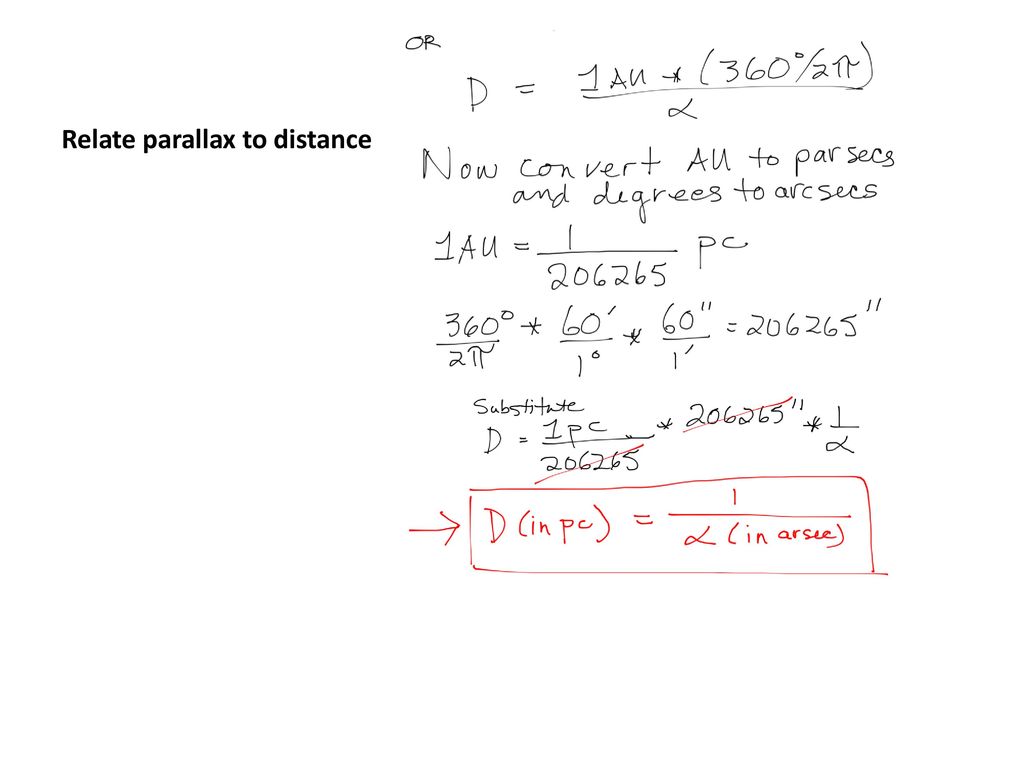 OR
D = 1 AU * (360°/2π) / α
Relate parallax to distance
Now convert AU to parsecs
and degrees to arcsecs
1 AU = 1 / 206265 pc
360° / 2π * 60′ / 1° * 60″ / 1′ = 206265″
Substitute
D = 1 pc / 206265 * 206265″ * 1 / α
→ D (in pc) = 1 / α (in arsec)